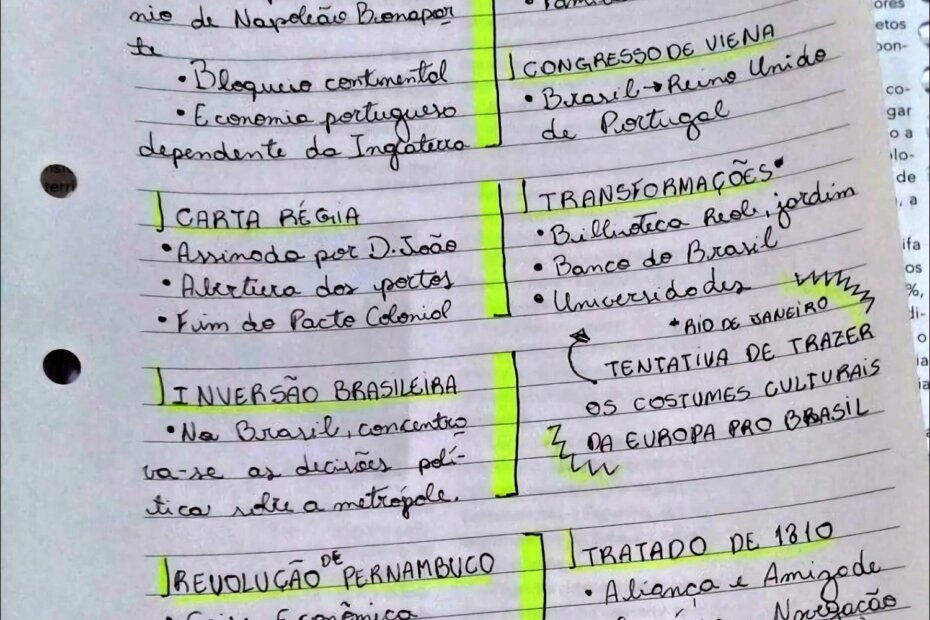 nio de Napoleão Bonapar
te
• Bloqueio continental
• Economia portuguesa
dependente da Inglaterra
CARTA RÉGIA
• Assinada por D. João
• Abertura dos portos
• Fim do Pacto Colonial
INVERSÃO BRASILEIRA
• No Brasil, concentra
va-se as decisões polí-
tica sobre a metrópole.
REVOLUÇÃO DE PERNAMBUCO
Econômica
CONGRESSO DE VIENA
• Brasil → Reino Unido
de Portugal
TRANSFORMAÇÕES*
• Biblioteca Real, jardim
• Banco do Brasil
• Universidades
*RIO DE JANEIRO
TENTATIVA DE TRAZER
OS COSTUMES CULTURAIS
DA EUROPA PRO BRASIL
TRATADO DE 1810
• Aliança e Amizade
Navegação
ores
etos
pon-
co-
gar
o a
plo-
de
, a
ifa
os
%,
di-
o
ia
ia
terri